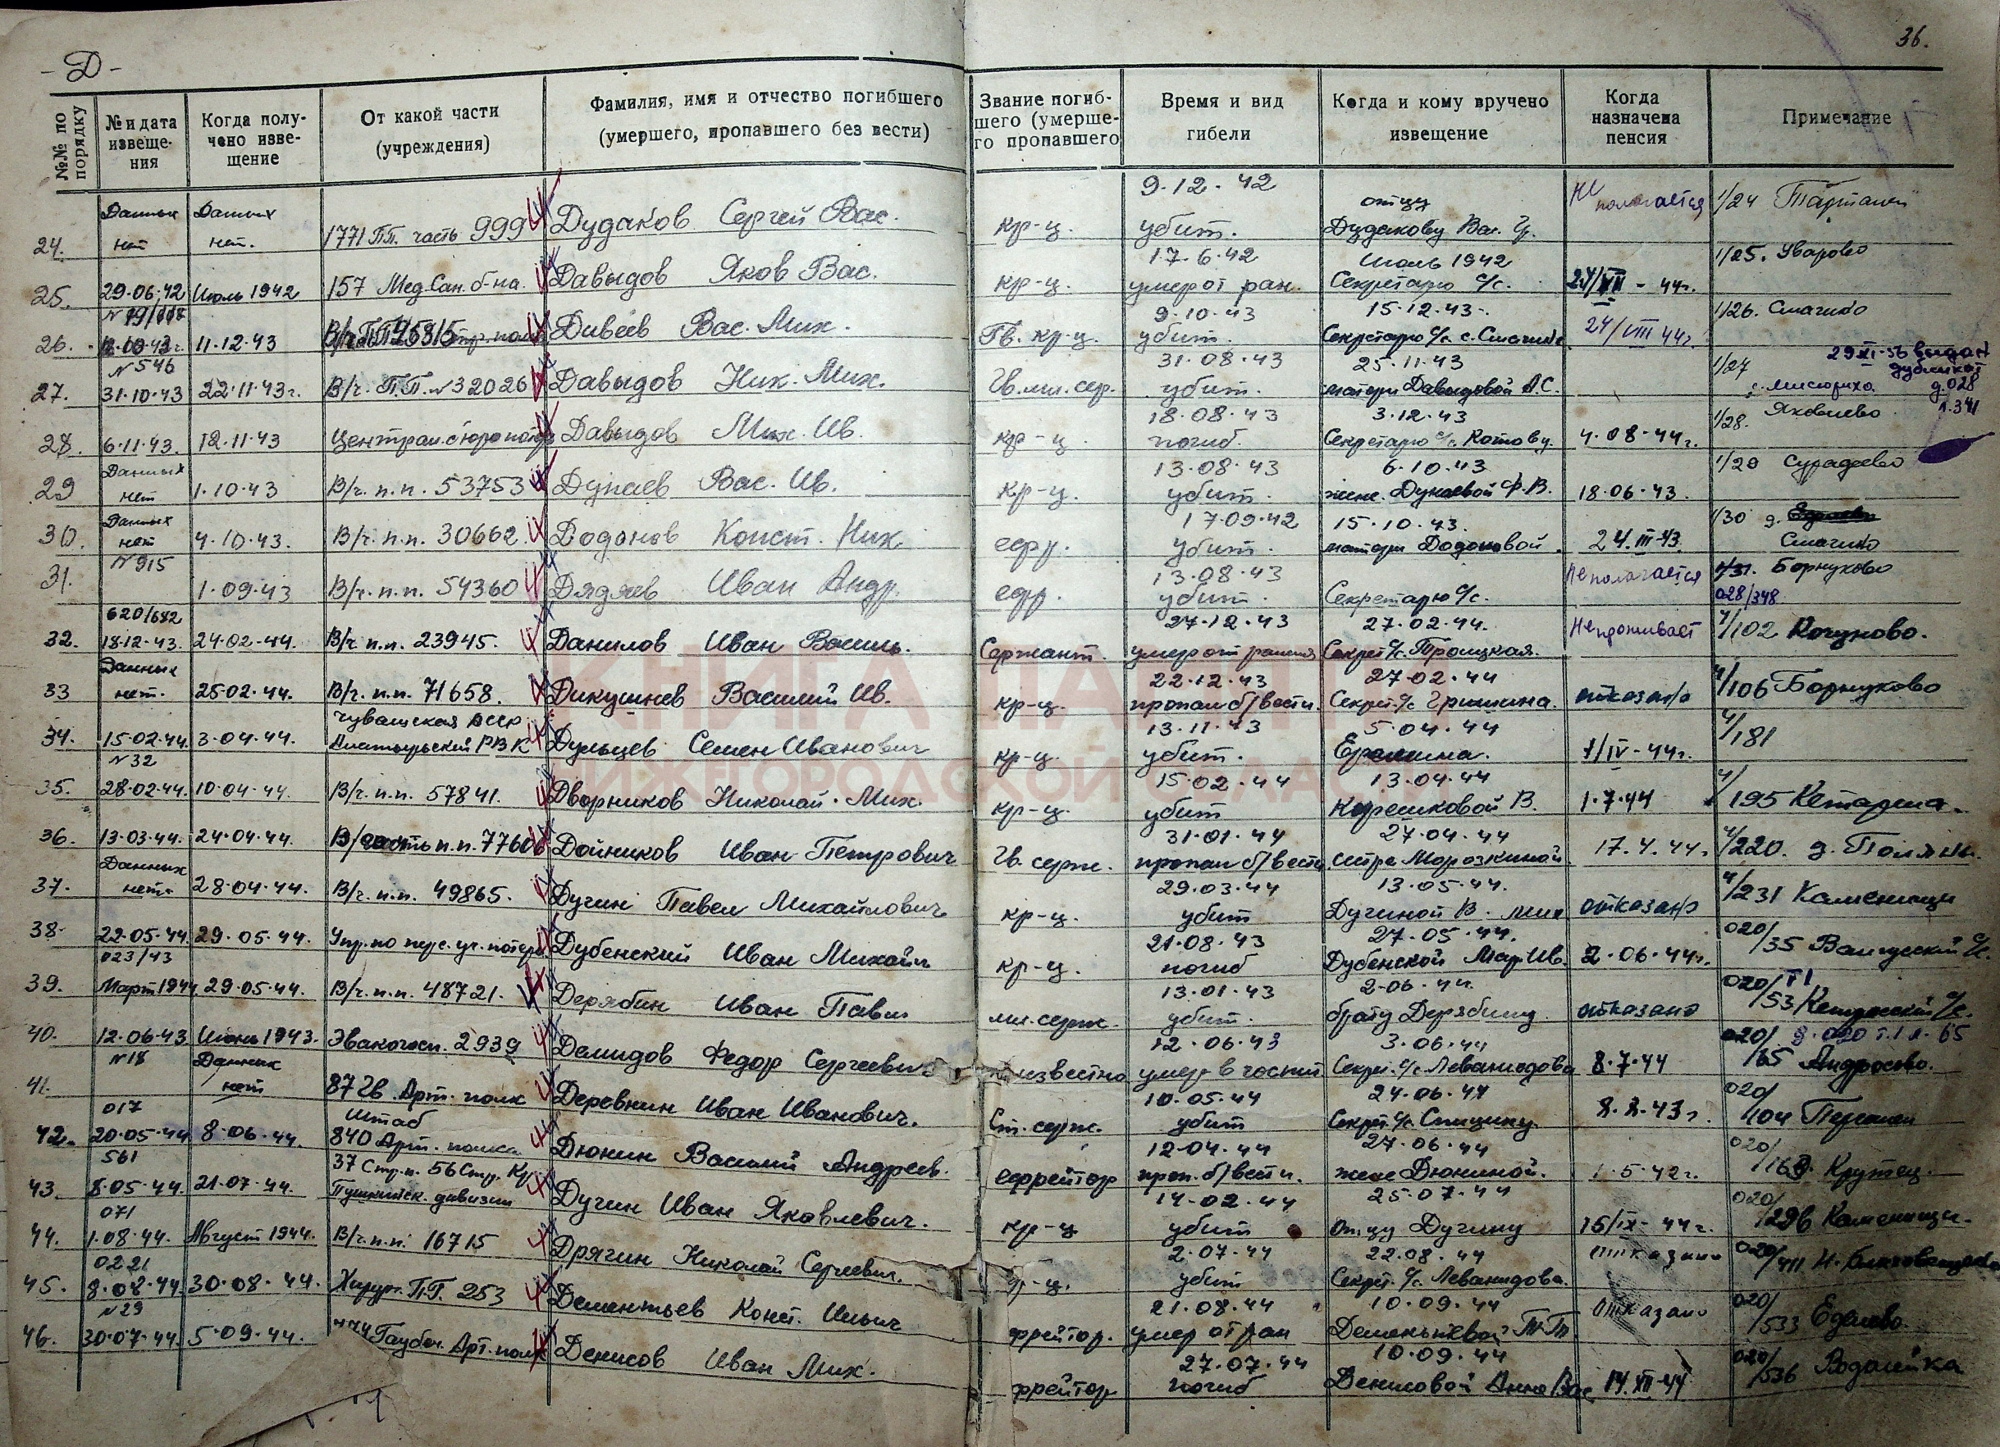 - Д -
36.
№№ по порядку
№ и дата извеще-ния
Когда полу-чено изве-щение
От какой части (учреждения)
Фамилия, имя и отчество погибшего (умершего, пропавшего без вести)
Звание погиб-шего (умерше-го пропавшего
Время и вид гибели
Когда и кому вручено извещение
Когда назначена пенсия
Примечание
24. Данных нет Данных нет. 1771 ПП. часть 999 Дудаков Сергей Вас. кр-ц. 9.12.42 убит. отцу Дудакову Вас. Гр. не полагается 1/24
25. 29.06.42 Июль 1942 157 Мед.Сан.б-на. Давыдов Яков Вас. кр-ц. 17.6.42 умер от ран. Июль 1942 Секретарю с/с. 1/25. Уварово
26. 11.12.43 Дивеев Вас. Мих. Гв. кр-ц. 9.10.43 убит. 15.12.43. Секретарю с/с с. 24/VIII 44г. 1/26. Смагино
27. № 546 31.10.43 22.11.43г. В/ч. П.П. № 32026 Давыдов Ник. Мих. Гв. мл. сер. 31.08.43 убит. 25.11.43 матери Давыдовой А.С. 1/27 29/XI-56 выдан дубликат д.028 л.341
28. 6.11.43. 12.11.43 Давыдов Мих. Ив. кр-ц. 18.08.43 погиб. 3.12.43 Секретарю с/с Котову. 4.08.44г. 1/28. Яковлево
29 Данных нет 1.10.43 В/ч. п.п. 53753 Дунаев Вас. Ив. кр-ц. 13.08.43 убит. 6.10.43 жене. Дунаевой Ф.В. 18.06.43. 1/29 Сурадеево
30. Данных нет 4.10.43. В/ч. п.п. 30662. Додонов Конст. Ник. ефр. 17.09.42 убит. 15.10.43. матери Додоновой. 24.III-43. 1/30 д. Смагино
31. № 915 1.09.43 В/ч. п.п. 54360 Дядяев Иван Андр. ефр. 13.08.43 убит. Секретарю с/с. Не полагается 1/31. Борнуково 028/348
32. 620/642 18.12.43. 24.02.44. В/ч. п.п. 23945. Данилов Иван Василь. Сержант. 27.12.43 умер от ранения 27.02.44. Секрет. с/с. Троицкая. Не проживает 4/102 Кочуново.
33 Данных нет. 25.02.44. В/ч. п.п. 71658. Дикушнев Василий Ив. кр-ц. 22.12.43 пропал б/вести. 27.02.44 Секрет. с/с Гришина. отказано 4/106 Борнуково
34. 15.02.44. 3.04.44. Чувашская АССР Алатырьский РВК Дульцев Семен Иванович кр-ц. 13.11.43 убит. 5.04.44 1/IV-44г. 4/181
35. № 32 28.02.44. 10.04.44. В/ч. п.п. 57841. Дворников Николай. Мих. кр-ц. 15.02.44 убит 13.04.44 Корешковой В. 1.7.44 4/195
36. 13.03.44. 24.04.44. В/часть п.п. 77606 Дойников Иван Петрович Гв. серж. 31.01.44 пропал б/вести. 27.04.44 сестре Морозкиной. 17.4.44. 4/220. д. Поляны.
37. Данных нет. 28.04.44. В/ч. п.п. 49865. Дугин Павел Михайлович кр-ц. 29.03.44 убит 13.05.44. Дугиной В. Мих отказано 4/231 Каменищи
38. 22.05.44. 29.05.44. Упр. по перс. уч. потерь Дубенский Иван Михайл кр-ц. 21.08.43 погиб 27.05.44. Дубенской Мар. Ив. 2.06.44г. 020/35
39. 023/43 Март 1944 29.05.44. В/ч. п.п. 48721. Дерябин Иван Павл мл. серж. 13.01.43 убит. 2.06.44. брату Дерябину. отказано 020/53
40. 12.06.43 Июнь 1943. Эвакогосп. 2939 Демидов Федор Сергеевич неизвестно 12.06.43 3.06.44 Секрет. с/с. Леванидова 8.7.44 020/65 д.020 т.1 л.65 Андросово.
41. № 18 Данных нет 87 Гв. Арт. полк Деревнин Иван Иванович. Ст. серж. 10.05.44 убит 24.06.44 Секрет. с/с. Спицину. 8.2.43г. 020/104
42. 017 20.05.44 8.06.44. Штаб 840 Арт. полка Дюнин Василий Андреев. ефрейтор 12.04.44 проп. б/вести. 27.06.44 жене Дюниной. 1.5.42г. 020/ Крутец.
43. 561 8.05.44. 21.07.44. 37 Стр. п. 56 Стр. Кр. Пушкинск. дивизии Дугин Иван Яковлевич. кр-ц 14.02.44 убит 25.07.44 отцу Дугину 15/IX-44г. 020/296 Каменищи.
44. 071 1.08.44. Август 1944. В/ч. п.п. 16715 Дрягин Николай Сергеевич. кр-ц. 2.07.44 убит 22.08.44 Секрет. с/с. Леванидова. отказано 020/411
45. 0221 8.08.44. 30.08.44. Хирур. П.Г. 253 Дементьев Конст. Ильич ефрейтор. 21.08.44 умер от ран 10.09.44 Дементьевой отказано 020/533 Еделево.
46. № 29 30.07.44. 5.09.44. Гаубич. Арт. полк Денисов Иван Мих. ефрейтор 27.07.44 погиб 10.09.44 Денисовой Анне Вас. 14.XII-44 020/536
КНИГА ПАМЯТИ
НИЖЕГОРОДСКОЙ ОБЛАСТИ